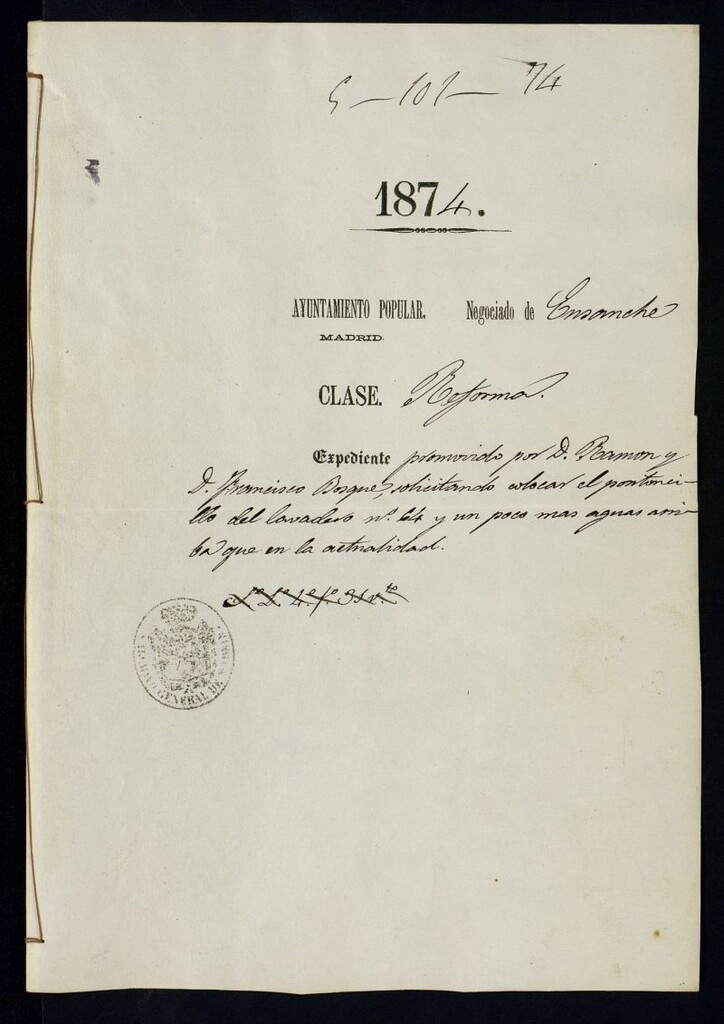 5 — 101 — 74
1874.
AYUNTAMIENTO POPULAR. Negociado de Ensanche
MADRID.
CLASE. Reforma.
Expediente promovido por D. Ramon y
D. Francisco Bosque, solicitando colocar el pontonci-
llo del lavadero nº. 64 y un poco mas aguas arri-
ba que en la actualidad.
GENERAL DE